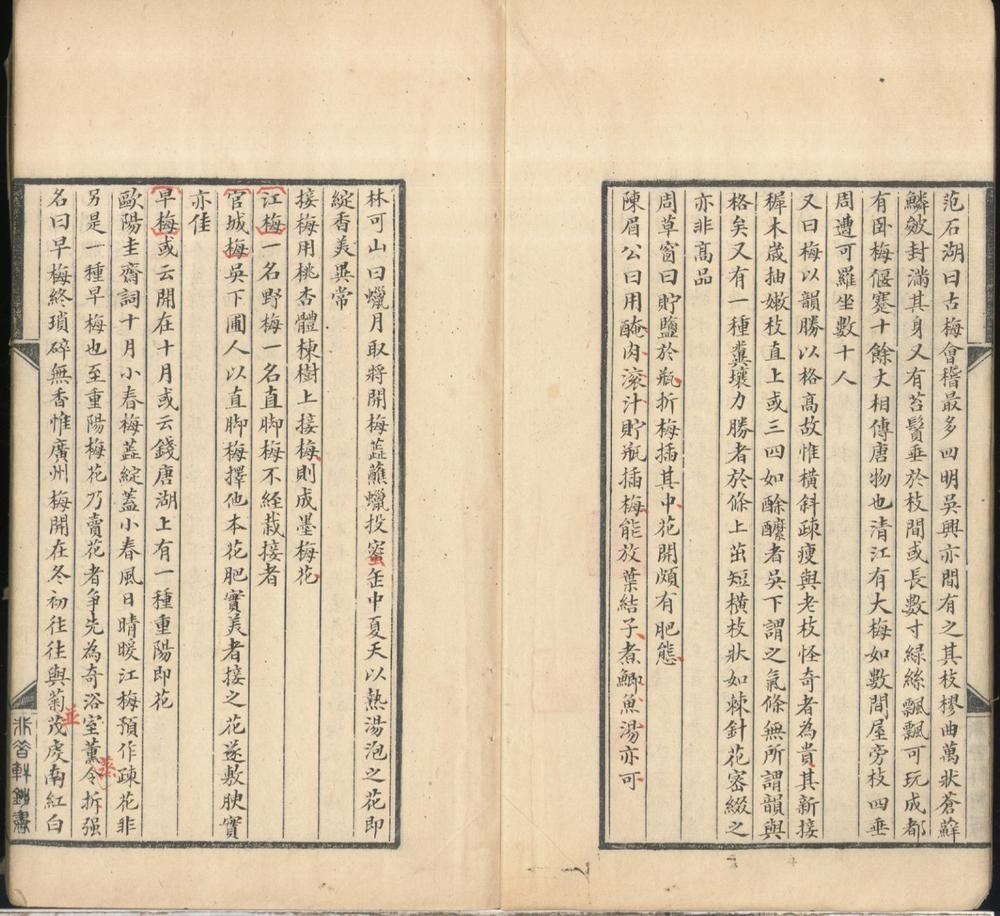 范石湖曰古梅會稽最多四明吳興亦間有之其枝樛曲萬狀蒼蘚
鱗皴封滿其身又有苔鬚垂於枝間或長數寸綠絲飄飄可玩成都
有卧梅偃蹇十餘丈相傳唐物也清江有大梅如數間屋旁枝四垂
周遭可羅坐數十人
又曰梅以韻勝以格高故惟橫斜疎瘦與老枝怪奇者為貴其新接
穉木歲抽嫩枝直上或三四如酴醿者吳下謂之氣條無所謂韻與
格矣又有一種糞壤力勝者於條上茁短橫枝狀如棘針花密綴之
亦非高品
周草窗曰貯鹽於瓶折梅插其中花開頗有肥態
陳眉公曰用醃肉滾汁貯瓶插梅能放葉結子煮鯽魚湯亦可
林可山曰蠟月取將開梅蕋蘸蠟投蜜缶中夏天以熱湯泡之花即
綻香美異常
接梅用桃杏體楝樹上接梅則成墨梅花
江梅一名野梅一名直脚梅不經栽接者
官城梅吳下圃人以直脚梅擇他本花肥實美者接之花遂敷腴實
亦佳
早梅或云開在十月或云錢唐湖上有一種重陽即花
歐陽圭齋詞十月小春梅蕋綻蓋小春風日晴暖江梅預作疎花非
另是一種早梅也至重陽梅花乃賣花者爭先為奇浴室薰令拆强
蒸
名曰早梅終瑣碎無香惟廣州梅開在冬初往往與菊茂虔南紅白
並